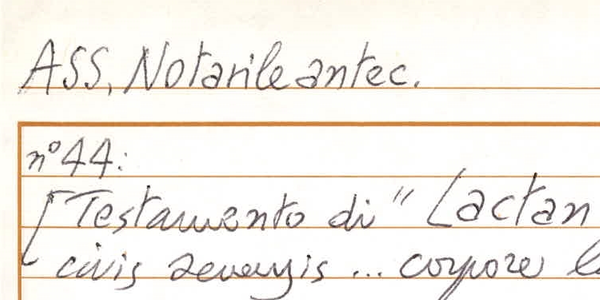 ASS, Notarile antec.
n° 44:
[Testamento di "Lactan
civis senensis ... corpore la